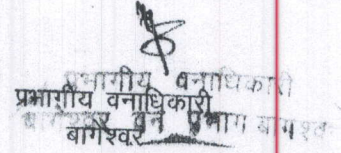 प्रभागीय वनाधिकारी
प्रभागीय वनाधिकारी
बागेश्वर वन प्रभाग बागेश्व
बागेश्वर